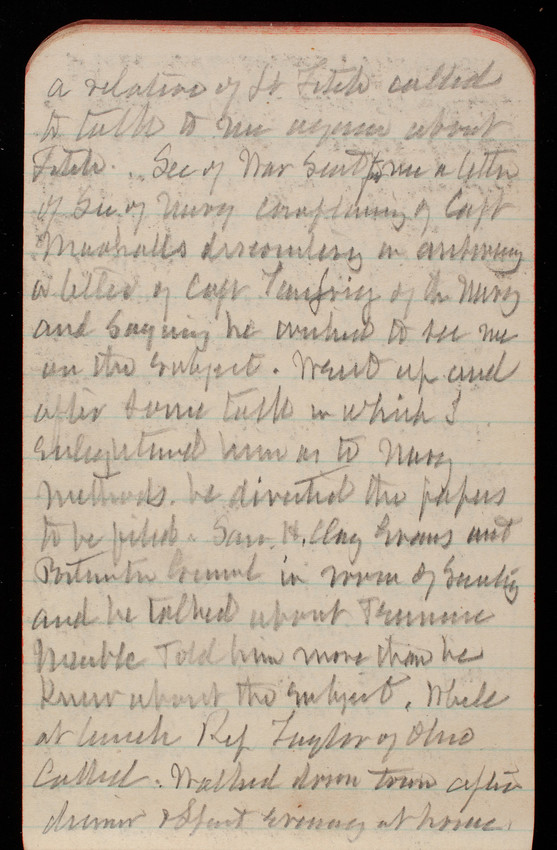 a relative of Lt Fitch called
to talk to me again about
Fitch. Sec of War sent for me a letter
of Sec. of Navy complaining of Capt
Marshalls discourtesy in answering
a letter of Capt of the Navy
and saying he wished to see me
on the subject. Went up and
after some talk in which I
enlightened him as to Navy
methods. he directed the papers
to be filed. Saw H. Clay Evans and
in room of
and he talked about Tennessee
trouble Told him more than he
knew about the subject. While
at lunch Rep Taylor of Ohio
called. Walked down town after
dinner & spent evening at home.